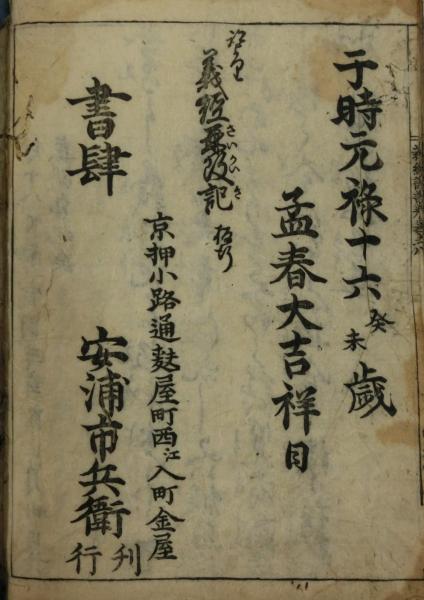 于時元禄十六癸未歳
孟春大吉祥日
義経
さいかいき
記
京押小路通麩屋町西江入町金屋
書肆
安浦市兵衛
刊行